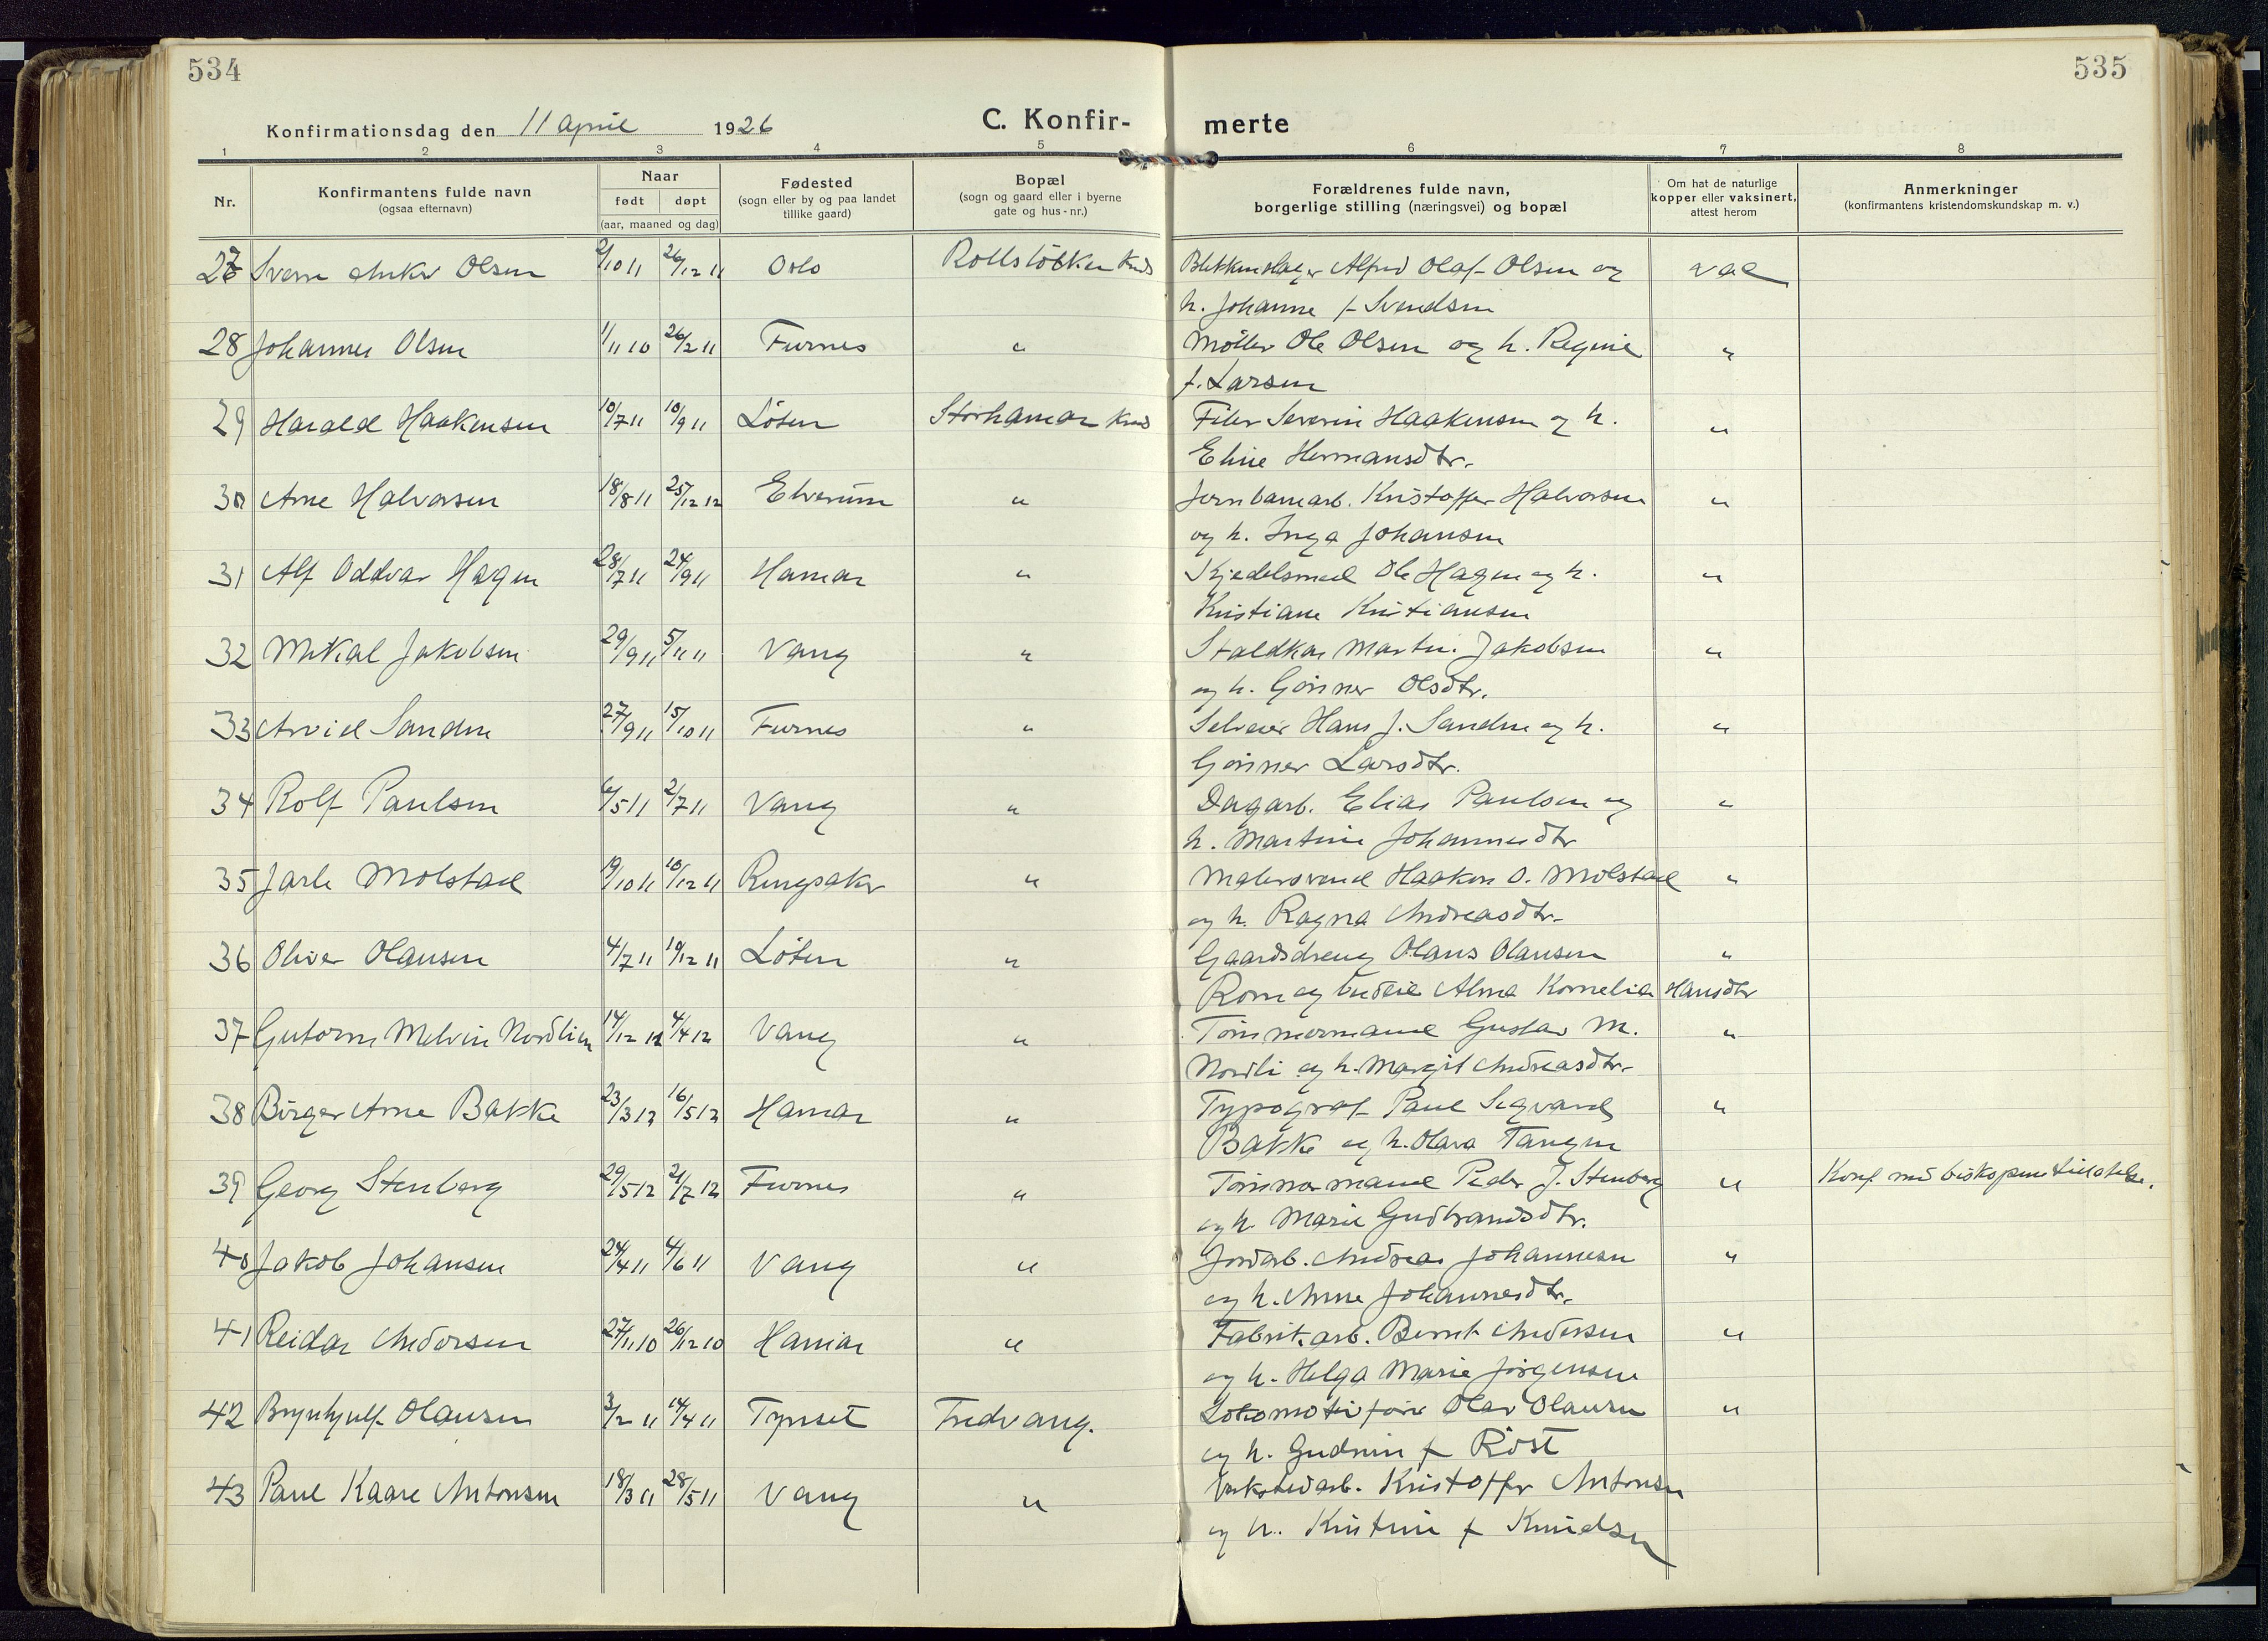 534
535
Konfirmationsdag den 11 april 1926
C. Konfir-
merte
1 2 3 4 5 6 7 8
Nr.
Konfirmantens fulde navn
(ogsaa efternavn)
Naar
født døpt
(aar, maaned og dag)
Fødested
(sogn eller by og paa landet
tillike gaard)
Bopæl
(sogn og gaard eller i byerne
gate og hus-nr.)
Forældrenes fulde navn,
borgerlige stilling (næringsvei) og bopæl
Om hat de naturlige
kopper eller vaksinert,
attest herom
Anmerkninger
(konfirmantens kristendomskundskap m. v.)
27 Sverre Anker Olsen 2/10 11 26/12 11 Oslo Rollsløkken Alfred Olaf Olsen og vac
h. Johanne f. Svendsen
28 Johannes Olsen 1/11 10 26/2 11 Furnes " Møller Ole Olsen og h. Regine "
f. Larsen
29 Harald Haakensen 10/7 11 10/9 11 Løten Storhamar Filer Severin Haakensen og h. "
Eline Hermansdtr.
30 Arne Halvorsen 18/8 11 25/12 12 Elverum " Jernbanearb. Kristoffer Halvorsen "
og h. Inga Johansen
31 Alf Oddvar Hagen 28/7 11 24/9 11 Hamar " Kjedelsmed Ole Hagen og h. "
Kristiane Kristiansen
32 Mikal Jakobsen 29/9 11 5/11 11 Vang " Staldkar Martin Jakobsen "
og h. Gønner Olsdtr.
33 Arvid Sanden 27/9 11 15/10 11 Furnes " Selveier Hans J. Sanden og h. "
Gønner Larsdtr.
34 Rolf Paulsen 6/5 11 2/7 11 Vang " Dagarb. Elias Paulsen og "
h. Martine Johannesdtr
35 Jarle Molstad 19/10 11 10/12 11 Ringsaker " Malersvend Haakon O. Molstad "
og h. Ragna Andreasdtr.
36 Oliver Olausen 4/7 11 19/12 11 Løten " Gaardsdreng Olaus Olausen "
Rom og budeie Alma Kornelia Hansdtr
37 Gutorm Melvin Nordlien 14/12 11 4/4 12 Vang " Tømmermand Gustav M. "
Nordli og h. Margit Andreasdtr.
38 Birger Arne Bakke 23/3 12 16/5 12 Hamar " Typograf Paul Sigvard "
Bakke og h. Olava Tangen
39 Georg Stenberg 29/5 12 21/7 12 Furnes " Tømmermand Peder J. Stenberg " Konf. med biskopens tillatelse.
og h. Marie Gudbrandsdtr.
40 Jakob Johansen 24/4 11 4/6 11 Vang " Jordarb. Andreas Johannesen "
og h. Anne Johannesdtr.
41 Reidar Andersen 27/11 10 26/12 10 Hamar " Fabrikarb. Bernt Andersen "
og h. Helga Marie Jørgensen
42 Brynhjulf Olausen 3/2 11 14/4 11 Tynset Fredvang. Lokomotivfører Olav Olausen "
og h. Gudrun f. Røst
43 Paul Kaare Antonsen 18/3 11 28/5 11 Vang " Verkstedarb. Kristoffer Antonsen
og h. Kristine f. Knudsen